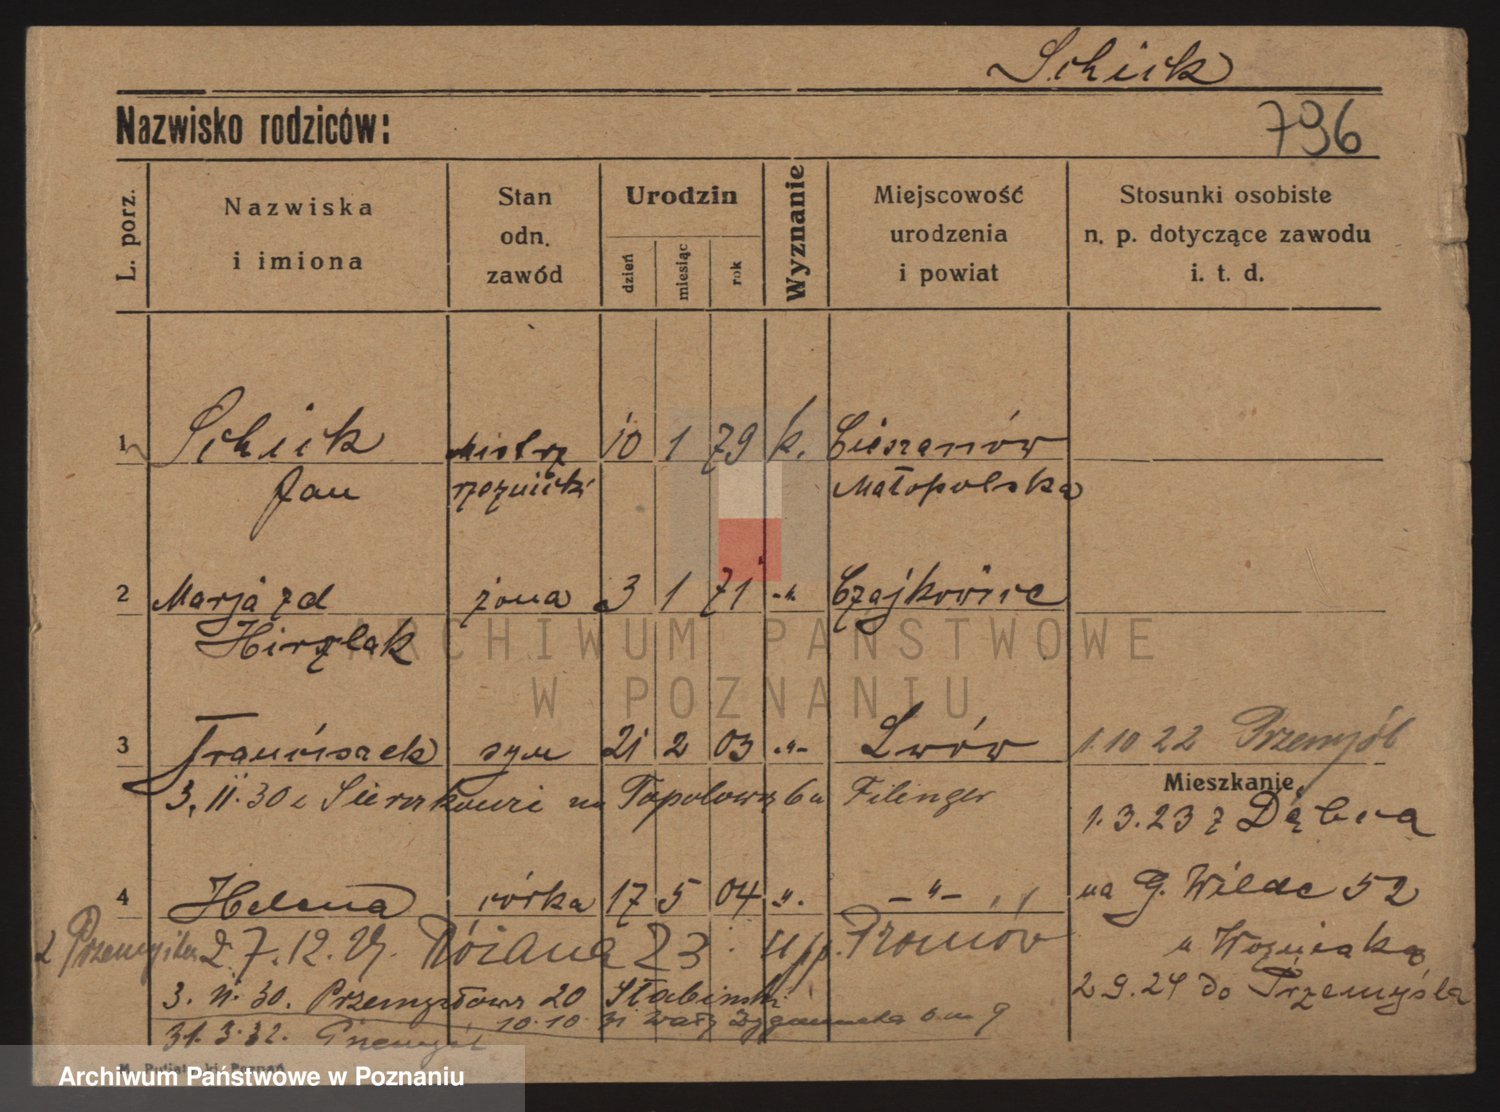 Schick
Nazwisko rodziców:
796
L. porz.
Nazwiska
i imiona
Stan
odn.
zawód
Urodzin
dzień
miesiąc
rok
Wyznanie
Miejscowość
urodzenia
i powiat
Stosunki osobiste
n. p. dotyczące zawodu
i. t. d.
1 Schick Mistrz 10 1 79 k. Cieszanów
Jan rzeźnicki Małopolska
2 Marja zd żona 3 1 71 -"- Czajkowice
ARCHIWUM PAŃSTWOWE
W POZNANIU
3 Franciszek syn 21 2 03 -"- Lwów 1.10 22 Przemyśl
Mieszkanie
3. 11. 30 Topolowa 6 Filinger
1. 3. 23 z Dębca
4 Helena córka 17 5 04 -"- -"- na G. Wilde 52
7. 12. Różana 23 u pp.
u Woźniaka
3. 11. 30. Przemysłowa 20 Słabiński
2 9. 24 do Przemyśla
10. 10. 31 Wały
31. 3. 32. Przemyśl
Archiwum Państwowe w Poznaniu